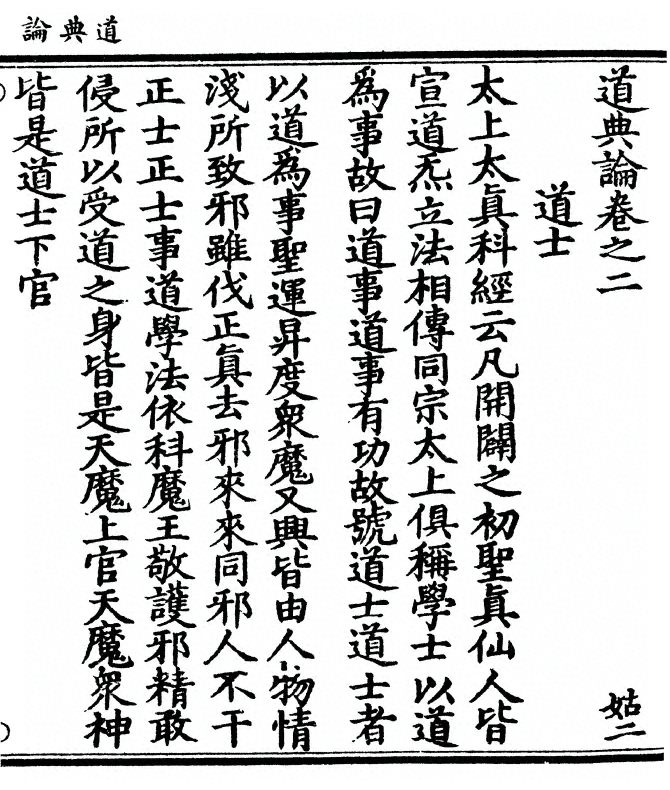 道典論
道典論卷之二
姑二
道士
太上太眞科經云凡開闢之初聖眞仙人皆
宣道炁立法相傳同宗太上俱稱學士以道
爲事故曰道事道事有功故號道士道士者
以道爲事聖運昇度衆魔又興皆由人物情
淺所致邪雖伐正眞去邪來來同邪人不干
正士正士事道學法依科魔王敬護邪精敢
侵所以受道之身皆是天魔上官天魔衆神
皆是道士下官